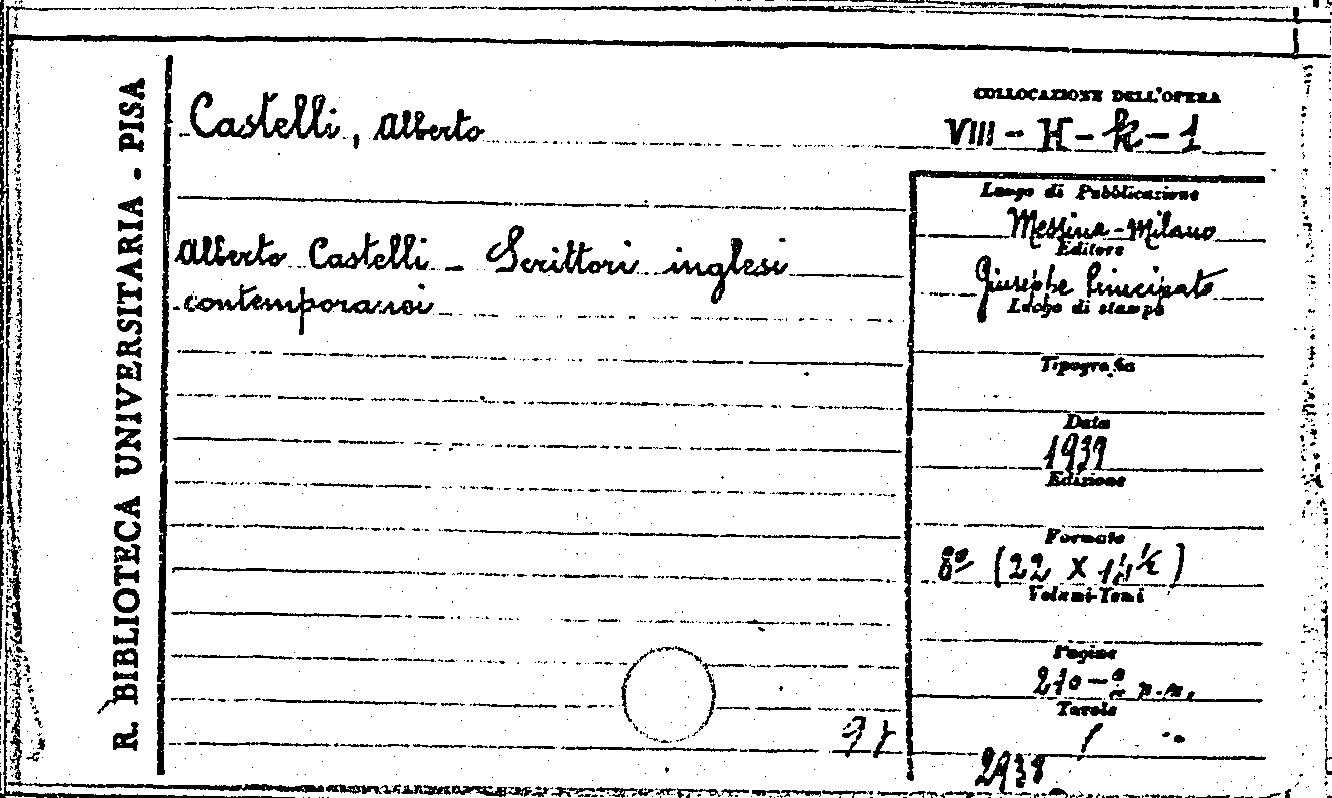 R. BIBLIOTECA UNIVERSITARIA - PISA
Castelli, Alberto
Alberto Castelli - Scrittori inglesi
contemporanei
97
COLLOCAZIONE DELL'OPERA
VIII - H - k - 1
Luogo di Pubblicazione
Messina - Milano
Editore
Giuseppe Principato
Luogo di stampa
Tipografia
Data
1939
Edizione
Formato
8º (22 X 14 ½)
Volumi-Tomi
Pagine
210 - n.n.
Tavole
2938